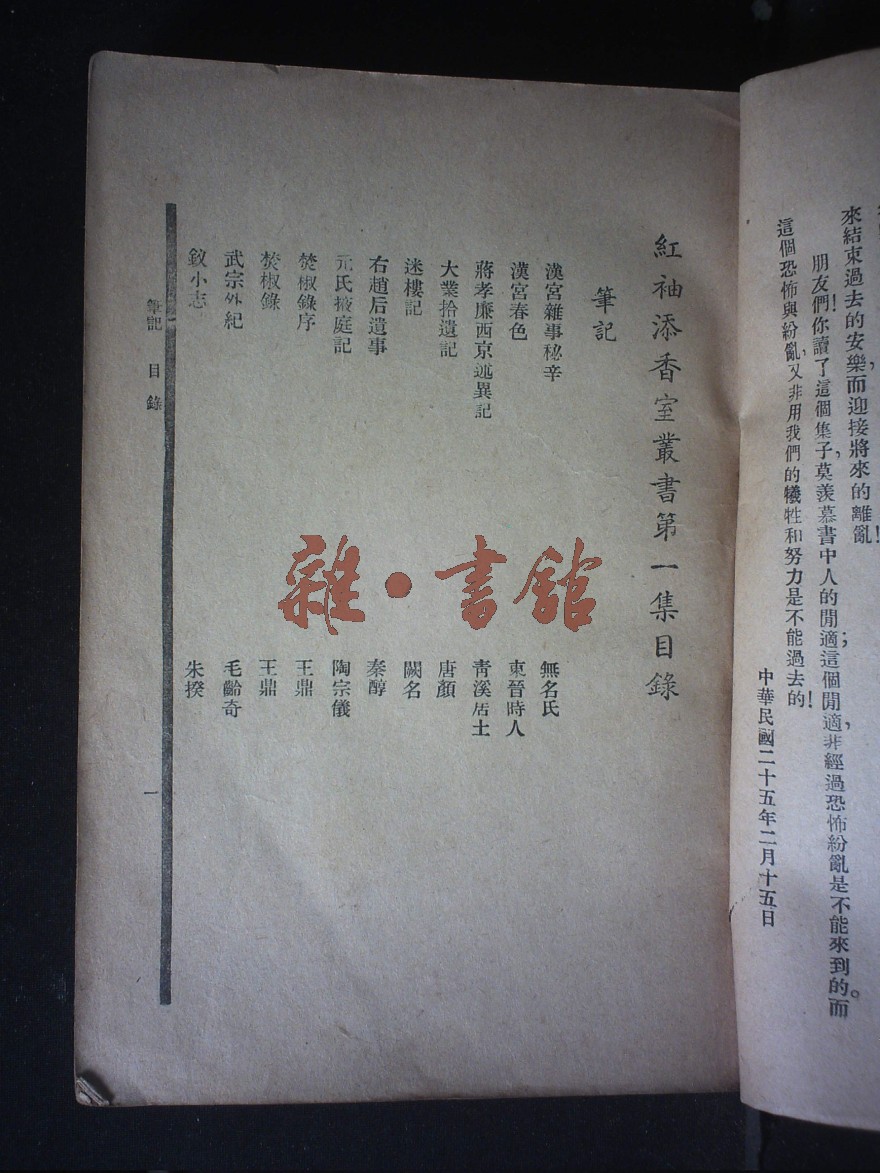 來結束過去的安樂，而迎接將來的離亂！
朋友們！你讀了這個集子，莫羨慕書中人的閒適；這個閒適，非經過恐怖紛亂是不能來到的。而
這個恐怖與紛亂，又非用我們的犧牲和努力是不能過去的！
中華民國二十五年二月十五日
紅袖添香室叢書第一集目錄
筆記
漢宮雜事秘辛 無名氏
漢宮春色 東晉時人
蔣孝廉西京述異記 青溪居士
大業拾遺記 唐顏
迷樓記 闕名
右趙后遺事 秦醇
元氏掖庭記 陶宗儀
焚椒錄序 王鼎
焚椒錄 王鼎
武宗外紀 毛齡奇
釵小志 朱揆
筆記 目錄
一
雜·書館